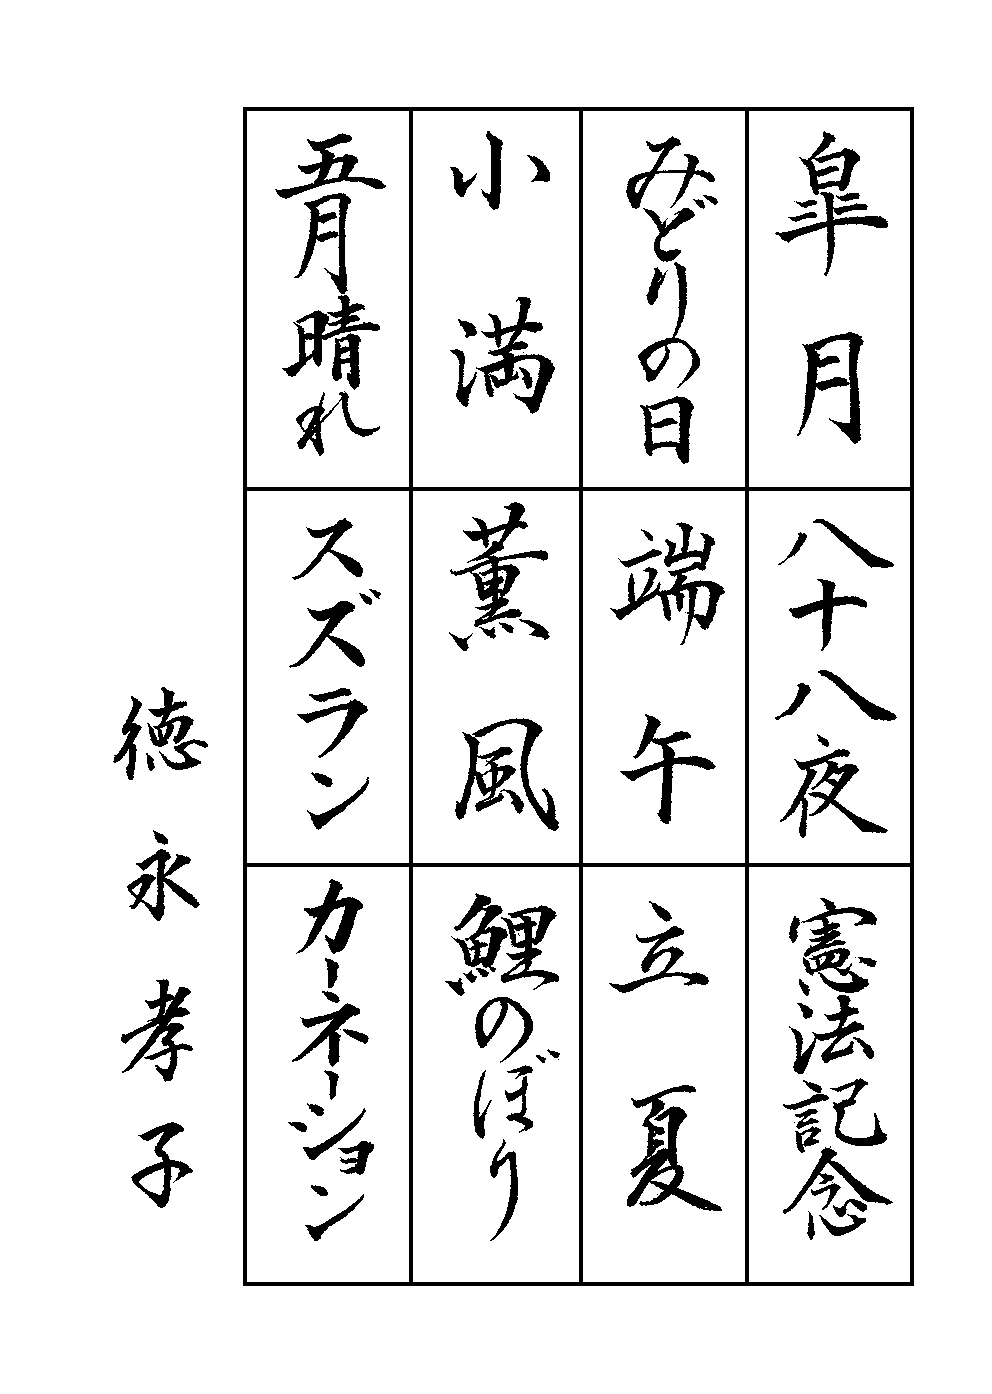 皐月
八十八夜
憲法記念
みどりの日
端午
立夏
小満
薫風
鯉のぼり
五月晴れ
スズラン
カーネーション
徳永孝子